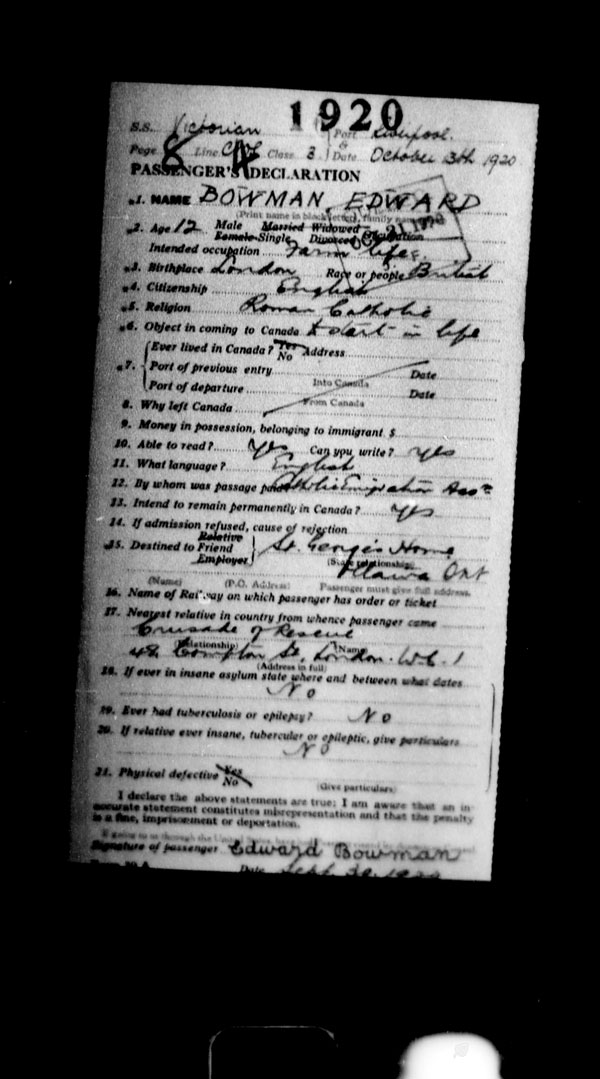 1920
S.S. Victorian Port Liverpool.
Page 8 Line Class 3 & Date October 13th 1920
PASSENGER'S DECLARATION
1. NAME BOWMAN, EDWARD
(Print name in block letters, family name
2. Age 12 Male Married Widowed
Female Single Divorced
Intended occupation Farm life
3. Birthplace London Race or people British
4. Citizenship English
5. Religion Roman Catholic
6. Object in coming to Canada to start in life
Ever lived in Canada? Yes
No Address
7. Port of previous entry Date
Into Canada
Port of departure Date
From Canada
8. Why left Canada
9. Money in possession, belonging to immigrant $
10. Able to read? Yes Can you write? Yes
11. What language? English
12. By whom was passage paid Catholic Emigration Assn
13. Intend to remain permanently in Canada? Yes
14. If admission refused, cause of rejection
Relative
15. Destined to Friend St. George's Home
Employer (State relationship)
Ottawa Ont
(Name) (P.O. Address) Passenger must give full address.
16. Name of Railway on which passenger has order or ticket
17. Nearest relative in country from whence passenger came
Crusade of Rescue
(Relationship) (Name)
48 Compton St, London. W.C. 1
(Address in full)
18. If ever in insane asylum state where and between what dates
No
19. Ever had tuberculosis or epilepsy? No
20. If relative ever insane, tubercular or epileptic, give particulars
No
21. Physical defective Yes
No (Give particulars)
I declare the above statements are true; I am aware that an in-
accurate statement constitutes misrepresentation and that the penalty
is a fine, imprisonment or deportation.
Signature of passenger Edward Bowman
Date Sept 30 1920